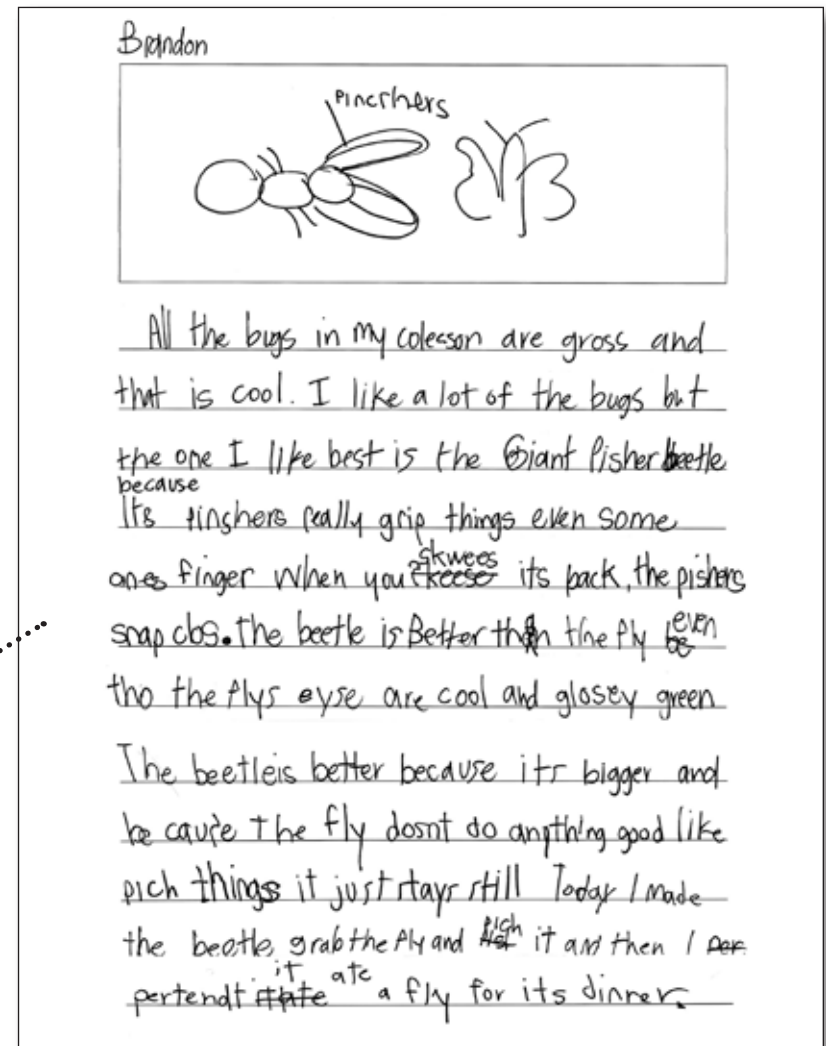 Brandon
pincrhers
All the bugs in my colecson are gross and
that is cool. I like a lot of the bugs but
the one I like best is the Giant Pisher beetle
because
Its pinshers really grip things even some
ones finger when you skwees its back, the pishers
snap clos. The beetle is Better than the fly even
tho the flys eyse are cool and glosey green
The beetle is better because its bigger and
because the fly dosnt do anything good like
pich things it just stays still Today I made
the beotle, grab the fly and pich it and then I
pertendt it ate a fly for its dinner.